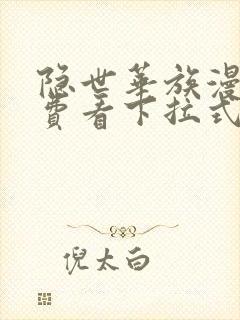 隐世华族漫
费看下拉式
倪太白